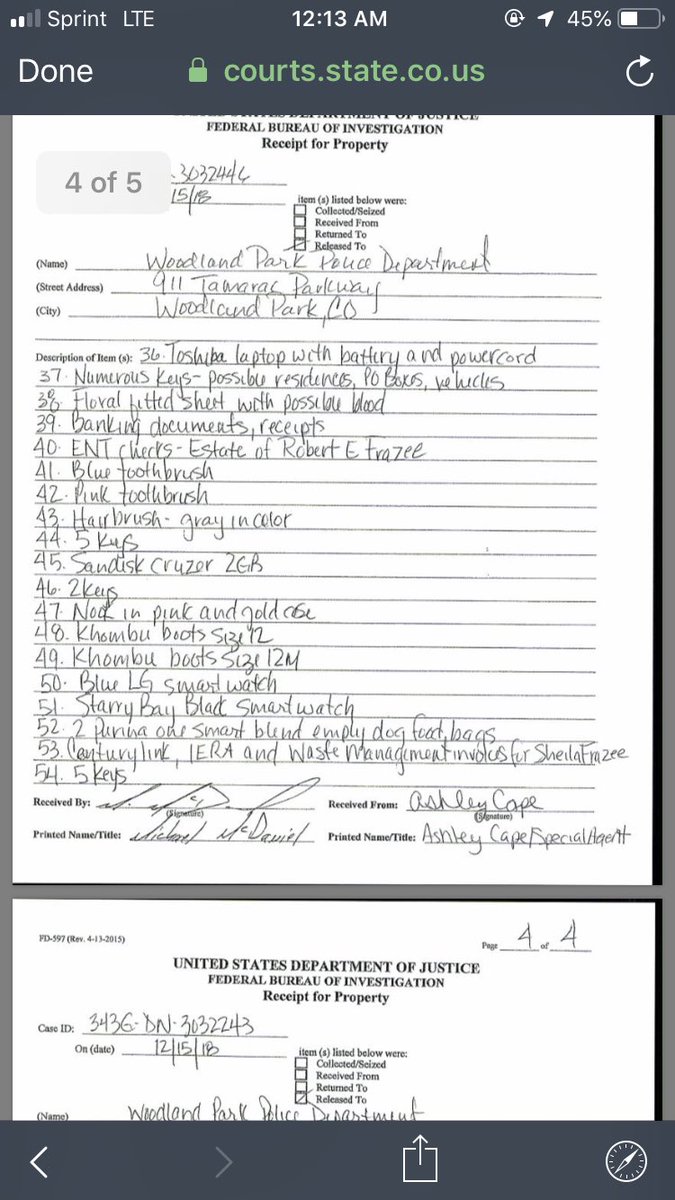 Sprint LTE 12:13 AM 45%
Done courts.state.co.us
FEDERAL BUREAU OF INVESTIGATION
Receipt for Property
4 of 5
15/18
item (s) listed below were:
Collected/Seized
Received From
Returned To
Released To
(Name) Woodland Park Police Department
(Street Address) 911 Tamarac Parkway
(City) Woodland Park, CO
Description of Item (s): 36. Toshiba laptop with battery and powercord
37. Numerous Keys- possible residences, PO Boxes, vehicles
38. Floral fitted sheet with possible blood
39. Banking documents, receipts
40. ENT checks- Estate of Robert E Frazee
41. Blue toothbrush
42. Pink toothbrush
43. Hairbrush- gray in color
44. 5 keys
45. Sandisk cruzer 2GB
46. 2 keys
47. Nook in pink and gold case
48. Khombu boots size 12
49. Khombu boots size 12M
50. Blue LG smart watch
51. Starry Bay Black Smart watch
52. 2 Purina one smart blend empty dog food bags
53. Centurylink, IERA and Waste Management invoices for Sheila Frazee
54. 5 keys
Received By: (Signature) Received From: Ashley Cape (Signature)
Printed Name/Title: Michael McDaniel Printed Name/Title: Ashley Cape/Special Agent
FD-597 (Rev. 4-13-2015) Page 4 of 4
UNITED STATES DEPARTMENT OF JUSTICE
FEDERAL BUREAU OF INVESTIGATION
Receipt for Property
Case ID: 343G-DN-3032243
On (date) 12/15/18
item (s) listed below were:
Collected/Seized
Received From
Returned To
Released To
(Name) Woodland Park Police Department